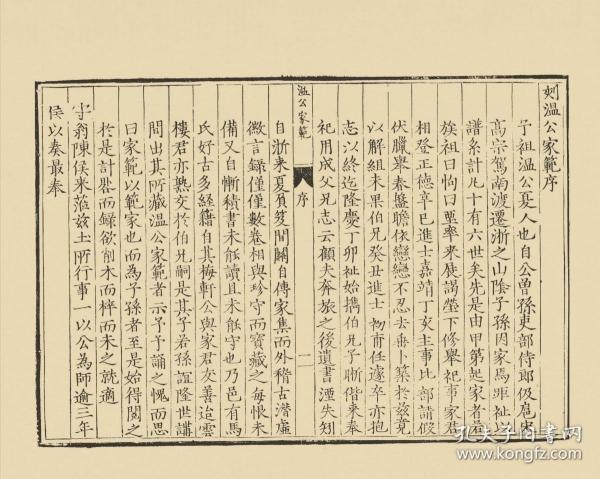 刻溫公家範序
予祖溫公夏人也自公曾孫吏部侍郎伋扈宋
高宗駕南渡遷浙之山陰子孫因家焉距祉以
譜系計凡十有六世矣先是由甲第起家者若
族祖曰恂曰垔率來展謁塋下修舉祀事家君
相登正德辛巳進士嘉靖丁亥主事比部請假
伏臘舉奉盤瞻依戀戀不忍去毎卜築於茲竟
以解組未果伯兄癸丑進士初甫任遽卒亦抱
志以終迄隆慶丁卯祉始攜伯兄子晰偕來奉
祀用成父兄志云顧夫奔旅之後遺書湮失矧
自浙来夏負笈間關自傳家集而外稽古潛虛
微言錄僅僅數卷相與珍守而寳藏之每恨未
備又自慚積書未能讀且未能守也乃邑有馬
氏好古多經籍自其梅軒公與家君交善迨雲
樓君亦熟交於伯兄嗣是其子若孫誼隆世講
間出其所藏溫公家範者示予予誦之愧而思
曰家範以範家也而為子孫者至是始得閱之
於是計脫而錄欲削木而梓而未之就適
守翁陳侯來蒞兹土所行事一以公為師逾三年
侯以奏最奉
溫公家範
序
一
孔夫子旧书网
www.kongfz.com